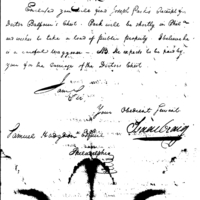 Enclosed you will find Joseph Park's receipt for
Doctor Balfour's Chest. Park will be shortly in Phil
as order to take a load of public property
is a careful waggoner. NB. He expects to be paid by
you for his carriage of the Doctors Chest
I am
Sir
Your Obedient Servant
Samuel Hodgdon Esquire
Philadelphia